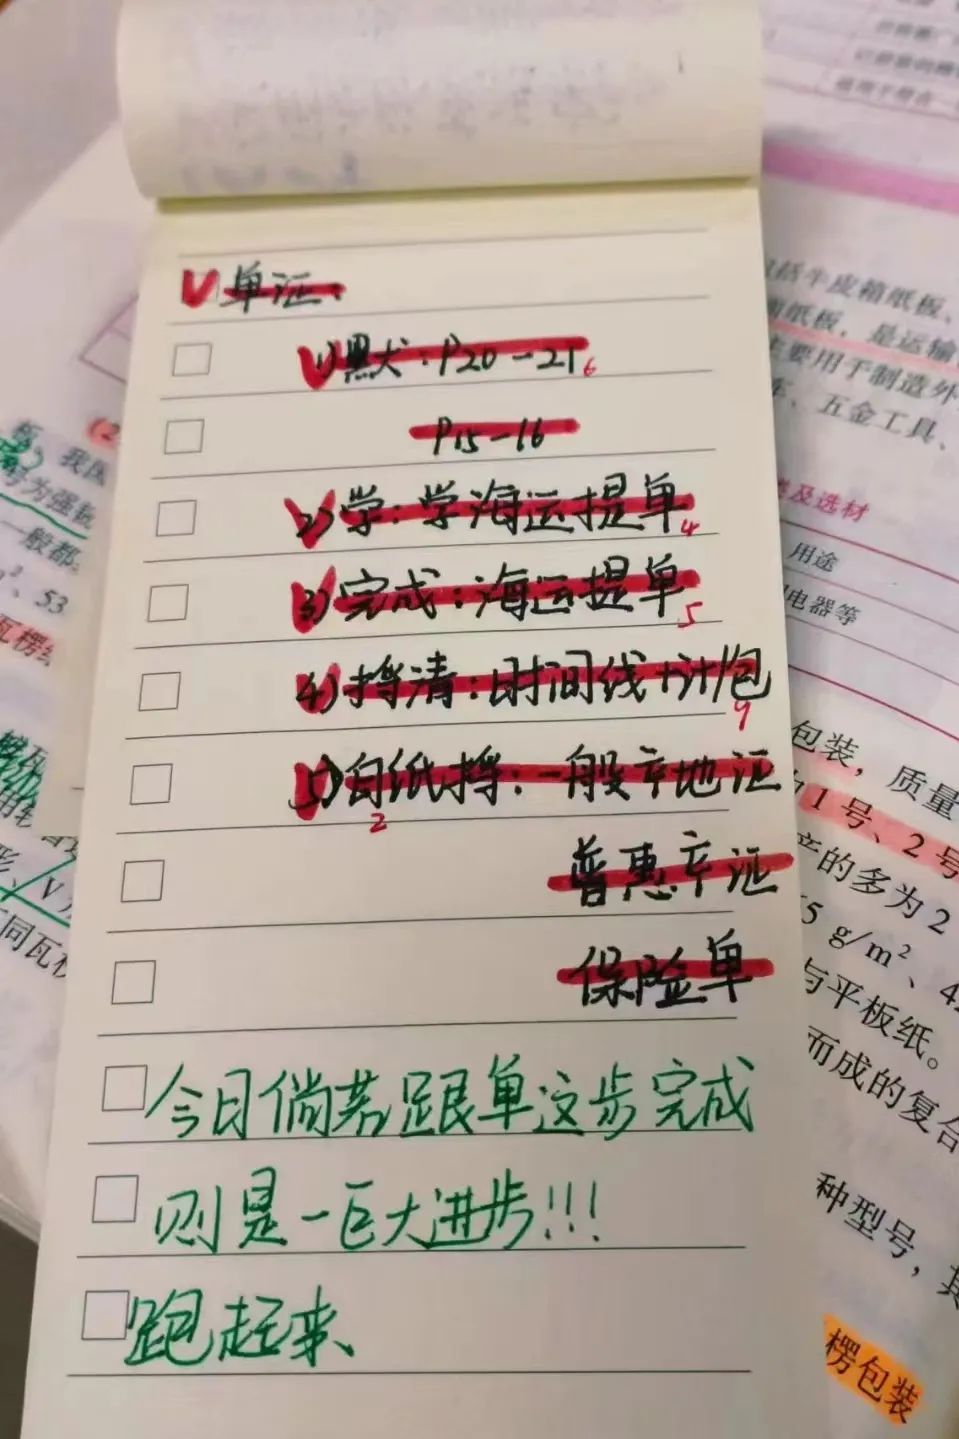 单证：
1)黑犬：P20-21
6
P15-16
2)学：学海运提单
4
3)完成：海运提单
5
4)捋清：时间线+计/包
9
5)白纸捋：一般产地证
2
普惠产证
保险单
今日倘若跟单这步完成
则是一巨大进步!!!
跑起来、
括牛皮箱纸板、
面纸板，是运输
主要用于制造外
五金工具、
及选材
用途
电器等
包装，质量
1号、2号
产的多为2
5 g/m²、42
与平板纸。
而成的复合
种型号，其
楞包装
(2
我国
号为强
一般都
²、53
瓦楞
同瓦